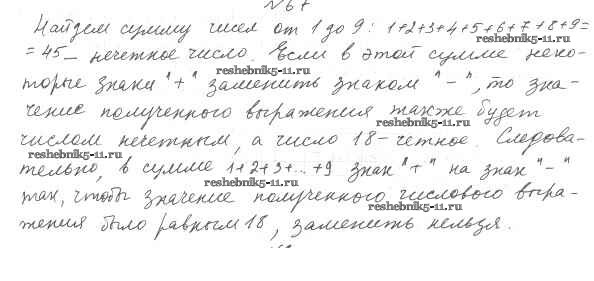 № 67
Найдем сумму чисел от 1 до 9: 1+2+3+4+5+6+7+8+9=
reshebnik5-11.ru
= 45 – нечетное число. Если в этой сумме неко-
reshebnik5-11.ru
торые знаки "+" заменить знаком "–", то зна-
чение полученного выражения также будет
reshebnik5-11.ru
числом нечетным, а число 18 – четное. Следова-
reshebnik5-11.ru
тельно, в сумме 1+2+3+...+9 знак "+" на знак "–"
reshebnik5-11.ru
так, чтобы значение полученного числового выра-
reshebnik5-11.ru
жения было равным 18, заменить нельзя.